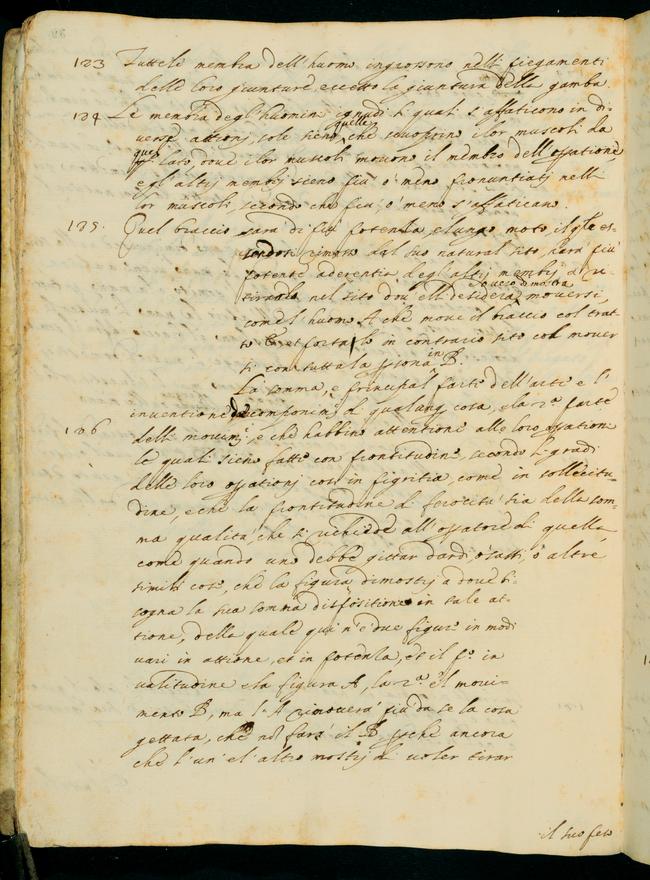 123 Tutte le membra dell'huomo ingrossono nelli piegamenti
delle loro giunture eccetto la giuntura della gamba
124 Le membra degl'huomini ignudi li quali s'affaticono in di-
verse attioni, sole sieno quelle, che scuoprino i lor muscoli da
quel lato, dove i lor muscoli movono il membro dell'operatione
e gl'altri membri sieno più ò meno pronuntiati nelli
lor muscoli, secondo che più, ò meno s'affaticano.
125. Quel braccio sara di più potentia, e lungo moto, il q.le es-
sendosi rimosso dal suo natural sito, hara più
potente aderentia degl'altri membri à ri-
tirarlo nel sito dov'ell'desidera moversi,
come l'huomo A che move il braccio col trat-
to in contrario sito col mover-
si con tutta la persona in B.
La somma, e principal parte dell'arte è l'
inventione de componimenti di qualunq. cosa, e la 2.a parte
126 delli movimenti, e che habbino attentione alle loro operationi
le quali sieno fatte con prontitudine, secondo li gradi
delle loro operationi, così in pigritia, come in sollecitu-
dine, e che la prontitudine di ferocità sia della som-
ma qualità, che si richiede all'operatore di quella
come quando uno debbe gittar dardi, ò sassi, ò altre
simili cose, che la figura dimostri a dove bi-
sogna la sua somma dispositione in tale at-
tione, della quale qui n'è due figure in modi
vari in attione, et in potentia, et il p.o in
valitudine è la figura A, la 2.a è il movi-
mento B, ma l'A rimoverà più da se la cosa
gettata, che nō farà il B, perche ancora
che l'un'e l'altro mostri di voler tirar
il suo peso